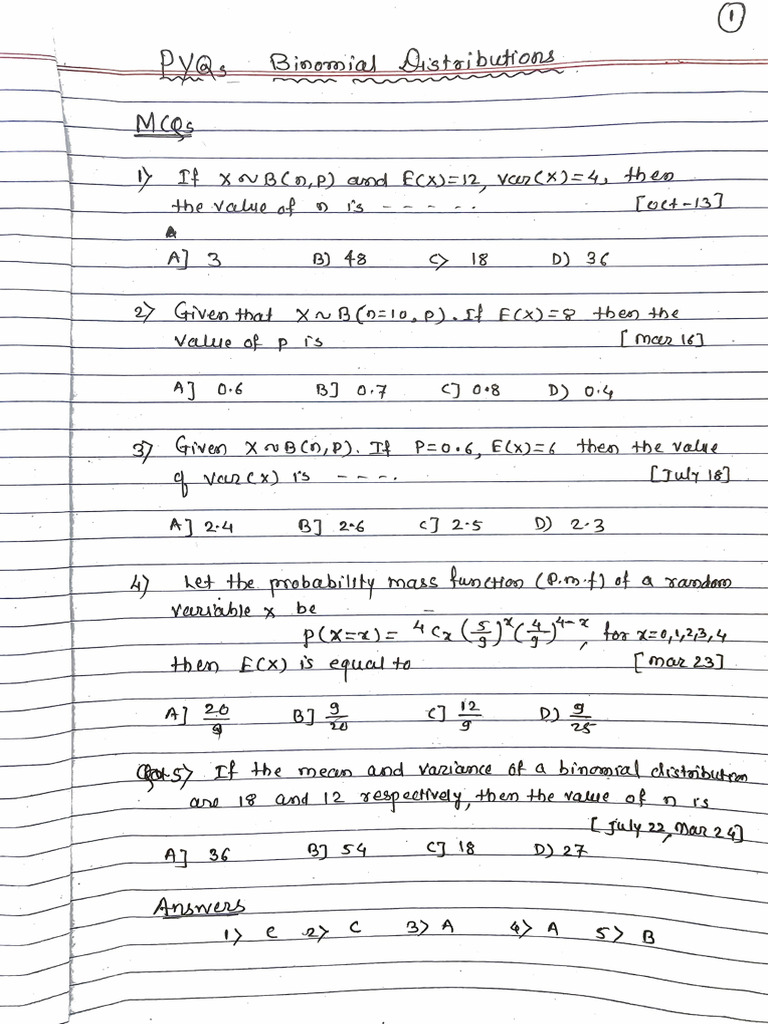 1
PYQs Binomial Distributions
MCQs
1) If X~B(n,p) and E(X)=12, var(x)=4, then
the value of n is - - - - - - [oct-13]
A] 3 B) 48 C) 18 D) 36
2) Given that X~B(n=10, p). If E(X)=8 then the
value of p is [mar 16]
A] 0.6 B] 0.7 C] 0.8 D) 0.4
3) Given X~B(n,p). If P=0.6, E(X)=6 then the value
of var(x) is - - - -. [July 18]
A] 2.4 B] 2.6 C] 2.5 D) 2.3
4) Let the probability mass function (p.m.f) of a random
variable x be
P(X=x) = ⁴Cₓ (5/9)ˣ (4/9)⁴⁻ˣ, for x=0,1,2,3,4
then E(X) is equal to [mar 23]
A] 20/9 B] 9/20 C] 12/9 D) 9/25
5) If the mean and variance of a binomial distribution
are 18 and 12 respectively, then the value of n is
[July 22, Mar 24]
A] 36 B] 54 C] 18 D) 27
Answers
1) C 2) C 3) A 4) A 5) B